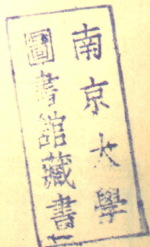 南京大學
圖書館藏書